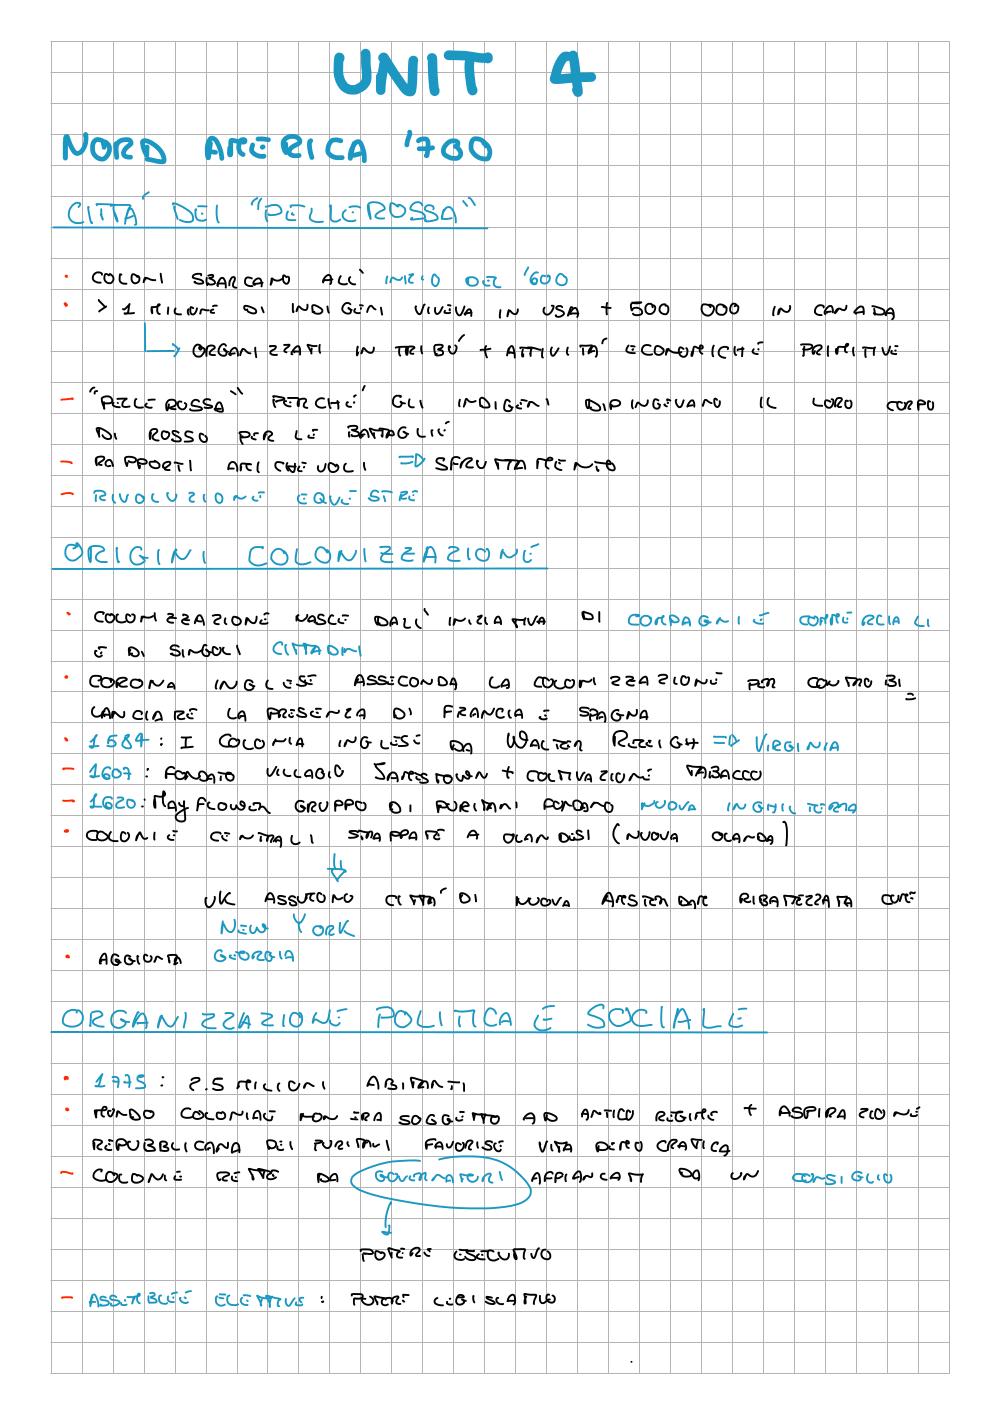 UNIT 4
NORD AMERICA '700
CITTA' DEI "PELLEROSSA"
• COLONI SBARCANO ALL' INIZIO DEL '600
• > 1 MILIONE DI INDIGENI VIVEVA IN USA + 500 000 IN CANADA
→ ORGANIZZATI IN TRIBU' + ATTIVITA' ECONOMICHE PRIMITIVE
- "PELLE ROSSA" PERCHE' GLI INDIGENI DIPINGEVANO IL LORO CORPO
DI ROSSO PER LE BATTAGLIE
- RAPPORTI AMICHEVOLI ⇒ SFRUTTAMENTO
- RIVOLUZIONE EQUESTRE
ORIGINI COLONIZZAZIONE
• COLONIZZAZIONE NASCE DALL' INIZIATIVA DI COMPAGNIE COMMERCIALI
E DI SINGOLI CITTADINI
• CORONA INGLESE ASSECONDA LA COLONIZZAZIONE PER CONTROBI=
LANCIARE LA PRESENZA DI FRANCIA E SPAGNA
• 1584: I COLONIA INGLESE DA WALTER REILIGH ⇒ VIRGINIA
- 1607: FONDATO VILLAGIO JAMESTOWN + COLTIVAZIONE TABACCO
- 1620: Mayflower GRUPPO DI PURITANI FONDANO NUOVA INGHILTERRA
• COLONIE CENTRALI STRAPPATE A OLANDESI (NUOVA OLANDA)
⇓
UK ASSUMONO CITTA' DI NUOVA AMSTERDAM RIBATTEZZATA COME
NEW YORK
• AGGIUNTA GEORGIA
ORGANIZZAZIONE POLITICA E SOCIALE
• 1775: 2.5 MILIONI ABITANTI
• MONDO COLONIALE NON ERA SOGGETTO AD ANTICO REGIME + ASPIRAZIONE
REPUBBLICANA DEI PURITANI FAVORISE VITA DEMOCRATICA
- COLONIE RETTE DA GOVERNATORI AFFIANCATI DA UN CONSIGLIO
↓
POTERE ESECUTIVO
- ASSEMBLEE ELETTIVE: POTERE LEGISLATIVO